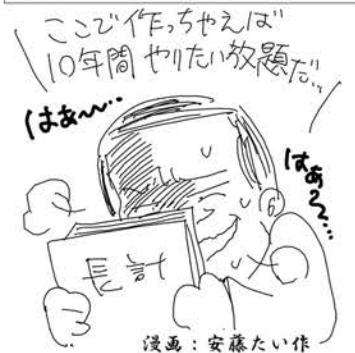 ここで作っちゃえば
10年間やりたい放題だ…
はぁ〜…
はぁ〜…
長計
漫画：安藤たい作